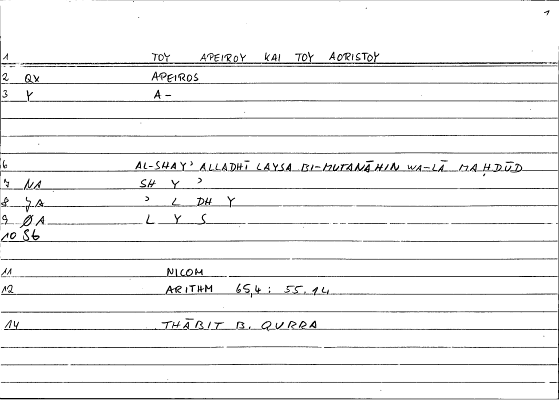 1
1 TOY APEIROY KAI TOY AORISTOY
2 QX APEIROS
3 Y A-
6 AL-SHAY' ALLADHĪ LAYSA BI-MUTANĀHIN WA-LĀ MAḤDŪD
7 NA SH Y '
8 ' L DH Y
9 ØA L Y S
10 S6
11 NICOM
12 ARITHM 65,4 : 55.14
14 THĀBIT B. QURRA